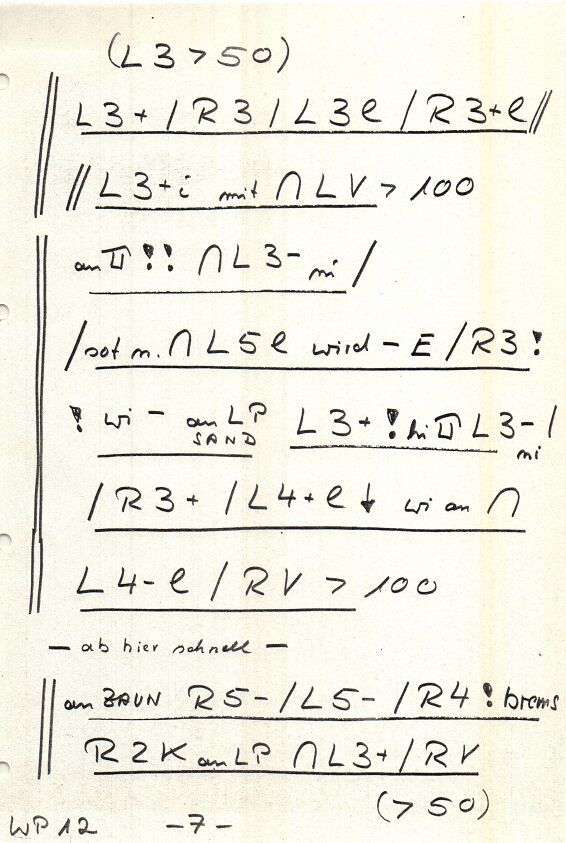 (L3>50)
L3+/R3/L3e/R3+e//
//L3+i mit ∩LV>100
an !! ∩L3- ni/
/sof n. ∩L5e wird-E/R3!
! wi - an LP SAND L3+! hi L3-/ ni
/R3+/L4+e↓ wi an ∩
L4-e/RV>100
- ab hier schnell -
an ZAUN R5-/L5-/R4! brems
R2K an LP ∩L3+/RV
(>50)
WP12 -7-